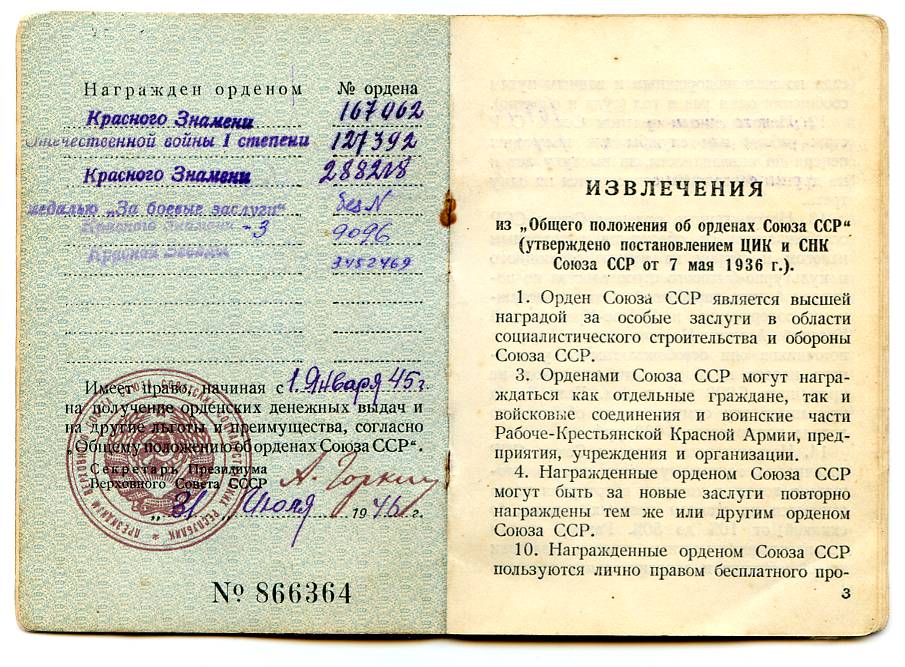 Награжден орденом № ордена
Красного Знамени 167062
Отечественной войны I степени 127392
Красного Знамени 288218
медалью „За боевые заслуги“ без N
Красного Знамени -3 9096
Красной Звезды 3452469
Имеет право, начиная с 1. Января 45 г.
на получение орденских денежных выдач и
на другие льготы и преимущества, согласно
„Общему положению об орденах Союза ССР“.
Секретарь Президиума
Верховного Совета СССР А. Горкин
„31“ Июля 1946 г.
№ 866364
ИЗВЛЕЧЕНИЯ
из „Общего положения об орденах Союза ССР“
(утверждено постановлением ЦИК и СНК
Союза ССР от 7 мая 1936 г.).
1. Орден Союза ССР является высшей
наградой за особые заслуги в области
социалистического строительства и обороны
Союза ССР.
3. Орденами Союза ССР могут награ-
ждаться как отдельные граждане, так и
войсковые соединения и воинские части
Рабоче-Крестьянской Красной Армии, пред-
приятия, учреждения и организации.
4. Награжденные орденом Союза ССР
могут быть за новые заслуги повторно
награждены тем же или другим орденом
Союза ССР.
10. Награжденные орденом Союза ССР
пользуются лично правом бесплатного про-
3